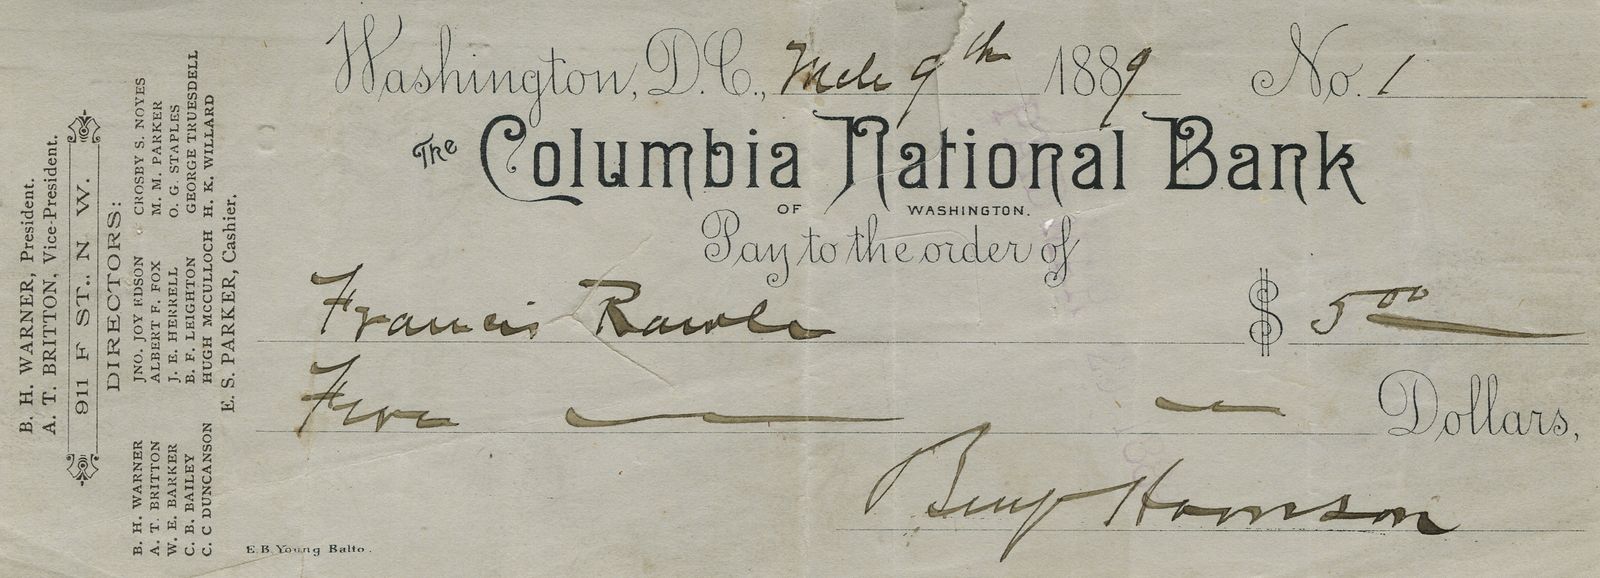 Washington, D.C., Mch 9th 1889 No. 1
The Columbia National Bank
OF WASHINGTON.
Pay to the order of
Francis Rawle $ 5 00
Five Dollars,
Benj Harrison
E.B. Young Balto.
B. H. WARNER, President.
A. T. BRITTON, Vice-President.
911 F ST., N W.
DIRECTORS:
B. H. WARNER JNO. JOY EDSON CROSBY S. NOYES
A. T. BRITTON ALBERT F. FOX M. M. PARKER
W. E. BARKER J. E. HERRELL O. G. STAPLES
C. B. BAILEY B. F. LEIGHTON GEORGE TRUESDELL
C. C DUNCANSON HUGH MCCULLOCH H. K. WILLARD
E. S. PARKER, Cashier.